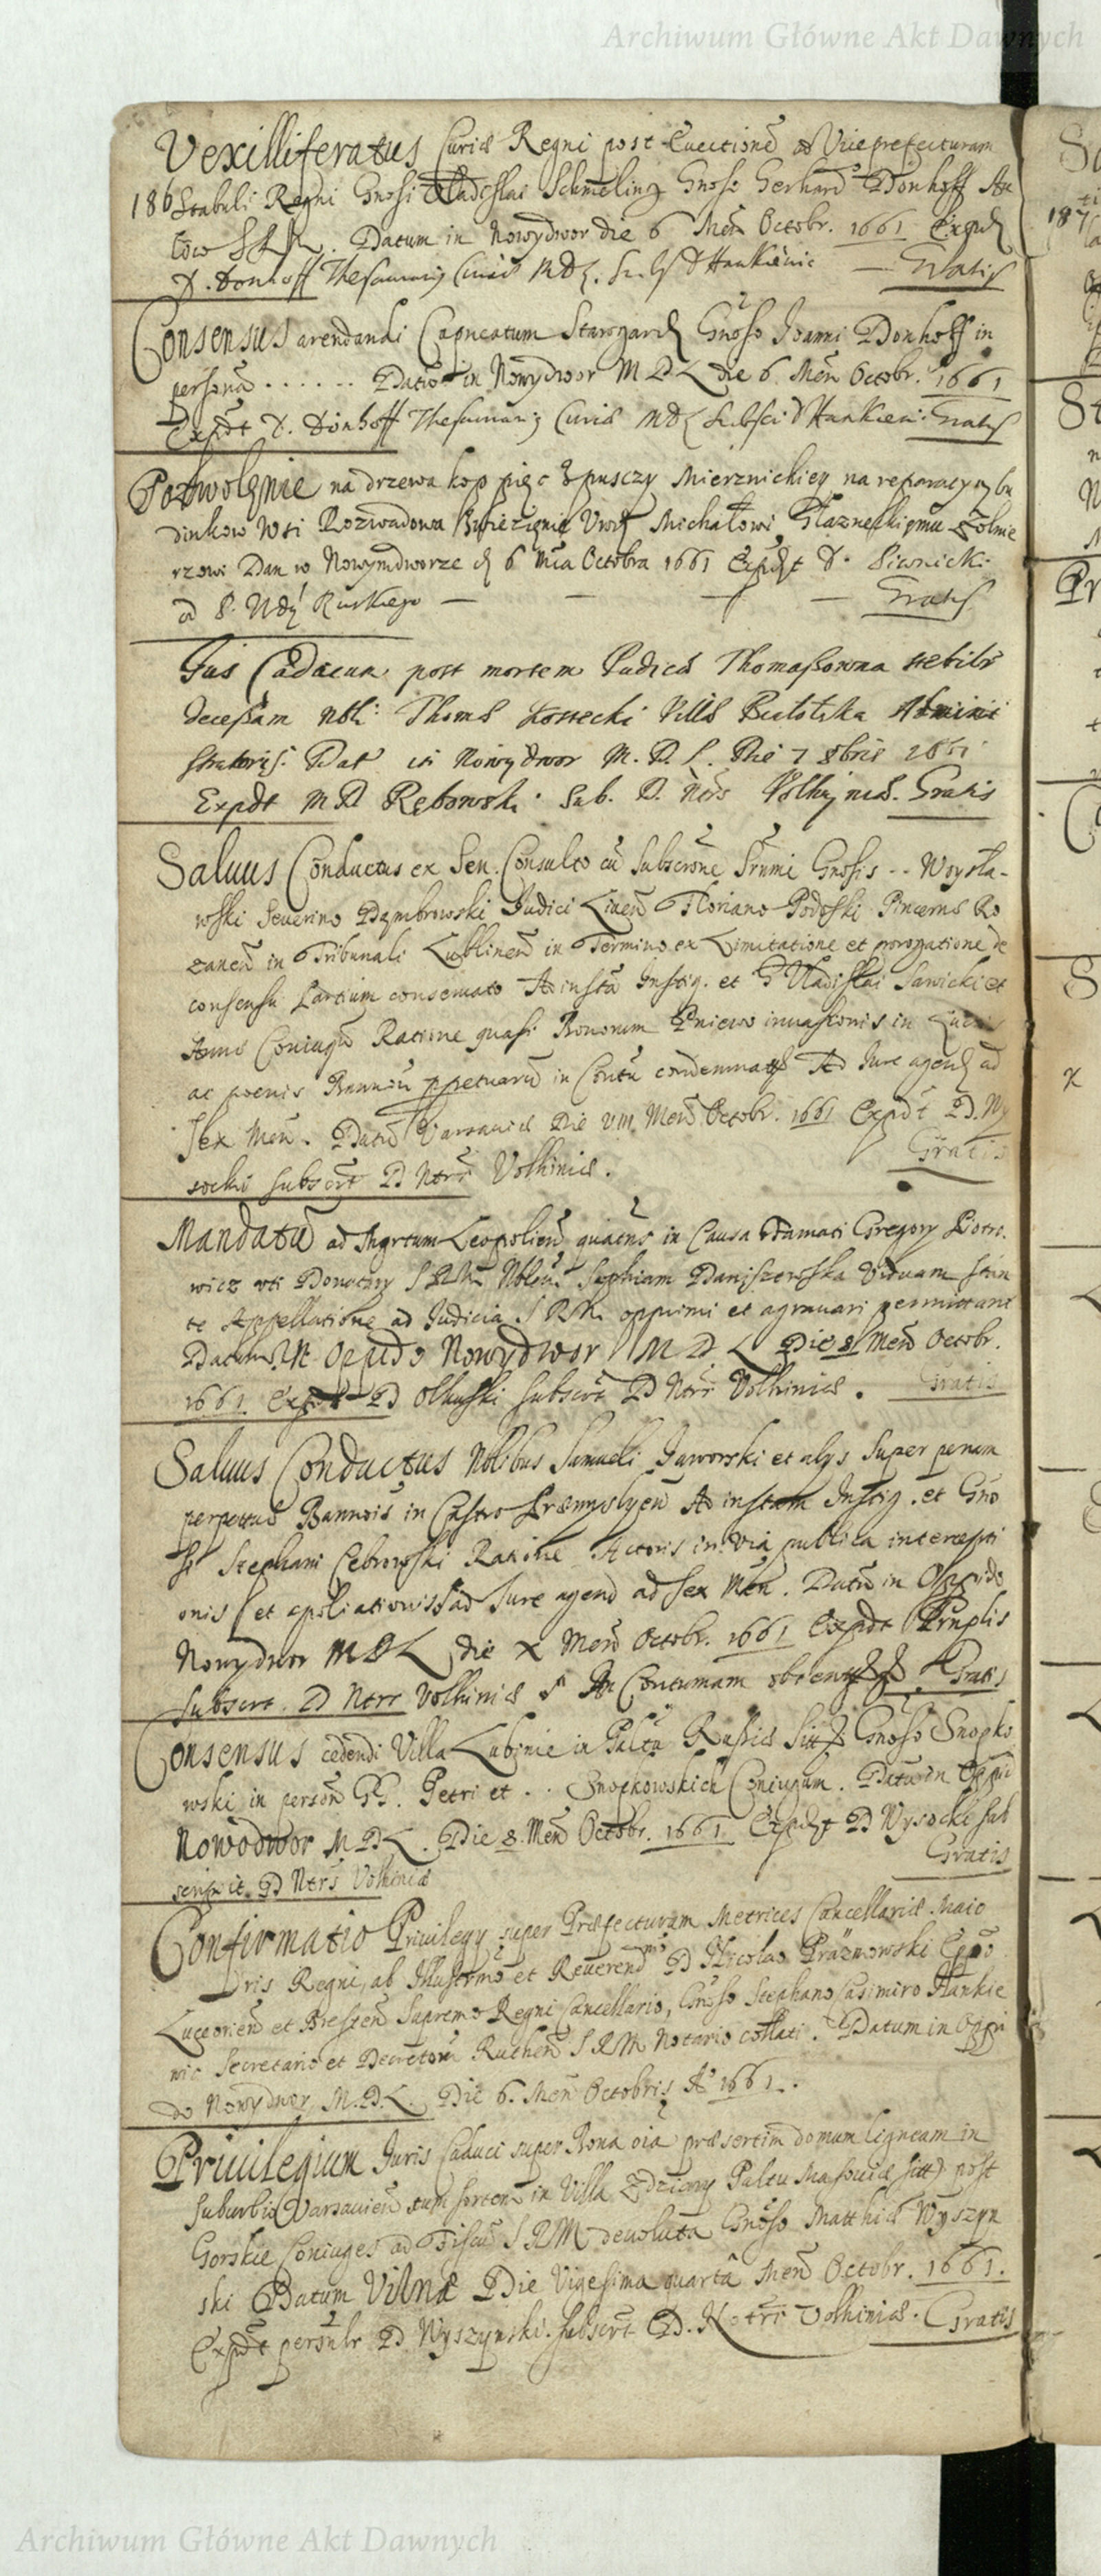 Archiwum Główne Akt Dawnych
Vexilliferatus Curiæ Regni post Euectionē ad Viceprefecturam
186 Stabuli Regni Gnosi Vladislai Schmeling Gnoso Gerhard Donhoff
Datum in Nowydwor die 6 Men Octobr. 1661 Expdt
D. Donhoff Thesaurarij Curiæ MDL. D Hankiewic — Gratis
Consensus arendandi Capneatum Starogard Gnoso Joanni Donhoff in
personā ...... Datū in Nowydwor M D L die 6 Men Octobr. 1661
Expdt D. Donhoff Thesaurarij Curiæ MDL Subscr D Hankiewi. Gratis
Pozwolęnie na drzewa kop pięc z pusczy Mierznickiey na reparacyą bu
dinkow wsi Rozwadowa Michałowi żołnie
rzowi Dan w Nowymdworze d 6 Mca Octobra 1661 Expdt D. Sienicki
ad S. Ndÿ Ruskiego — — — — Gratis
Jus Caducum post mortem Judicæ Thomaßowna stebilis
deceßam Nbli: Thomæ Kossecki Villæ Adminis
stratoris. Dat in Nowydwor M. D. L. Die 7 8bris 1661
Expdt M D Rębowski. Sub. D. Ntrs Volhyniæ. Gratis
Saluus Conductus ex Sen. Consulto cū Subscrone Srūmi Gnosis .. Woysła-
wski Seuerino Dąmbrowski Judici Liuen Floriano Podoski Pincernæ Ro
zanen in Tribunali Lublinen in Termino ex Limitatione et prorogatione de
consensu Partium conseruato Ad instā Instig. et G Vladislai Sawicki et
Annæ Coniugū Ratione quasi Bonorum Pniewo inuasionis in
ac poenis Bannitū ppetuarū in Contū condemnatis Ad Jure agend ad
sex Men. Datū Varsauiæ Die VIII Men Octobr. 1661 Expdt D. Wy
socki subscrt D Ntrr Volhiniæ. Gratis
Mandatū ad Mgrtum Leopolien quatns in Causa Famati Gregory Piotro
wicz uti Donatary S R M Nblem Sophiam Daniszewska Viduam stan
te Appellatione ad Judicia S R M opprimi et agrauari permittant
Datum in Oppido Nowydwor M D L Die 8 Men Octobr.
1661 Expdt D Olkuski subscrt D Ntrr Volhiniæ. Gratis
Saluus Conductus Nblibus Samueli Jaworski et alys super penam
perpetuæ Bannois in Castro Præmyslyen Ad instam Instig. et Gno
si Stephani Cebrowski Ratione Actoris in via publica intercepti
onis et spoliationis ad Jure agend ad sex Men. Datū in Oppido
Nowydwor M D L die X Men Octobr. 1661 Expdt Prnplis
subscrt D Ntrr Volhiniæ In Contumam obtent Gratis
Consensus cedendi Villa Lubinie in Paltu Russiæ Sitt Gnoso Snopko
wski in person GG. Petri et .. Snopkowskich Coniugum. Datū in Oppid
Nowodwor M D L. Die 8. Men Octobr. 1661 Expdt D Wysocki sub
scripsit D Ntrs Volhiniæ Gratis
Confirmatio Priuilegy super Præfecturam Metrices Cancellariæ Maio
ris Regni, ab Illustrmo et Reuerendmo D Nicolao Prazmowski Eppo
Luceorien et Bresten Supremo Regni Cancellario, Gnoso Stephano Casimiro Hankie
wic Secretario et Decretorū Ruthen S R M Notario collati. Datum in Oppi
do Nowydwor M. D. L. Die 6. Men Octobris A° 1661.
Priuilegium Juris Caduci super Bona oia præsertim domum ligneam in
suburbio Varsauien tum sortem in Villa Zdziary Paltu Masouiæ sitt post
Gorskie Coniuges ad Fiscū S R M deuoluta Gnoso Matthiæ Wyszyn
ski Datum Vilnæ Die Vigesima quarta Men Octobr. 1661.
Expdt persnlr D Wyszynski. subscrt D. Notrr Volhiniæ. Gratis
187
Archiwum Główne Akt Dawnych